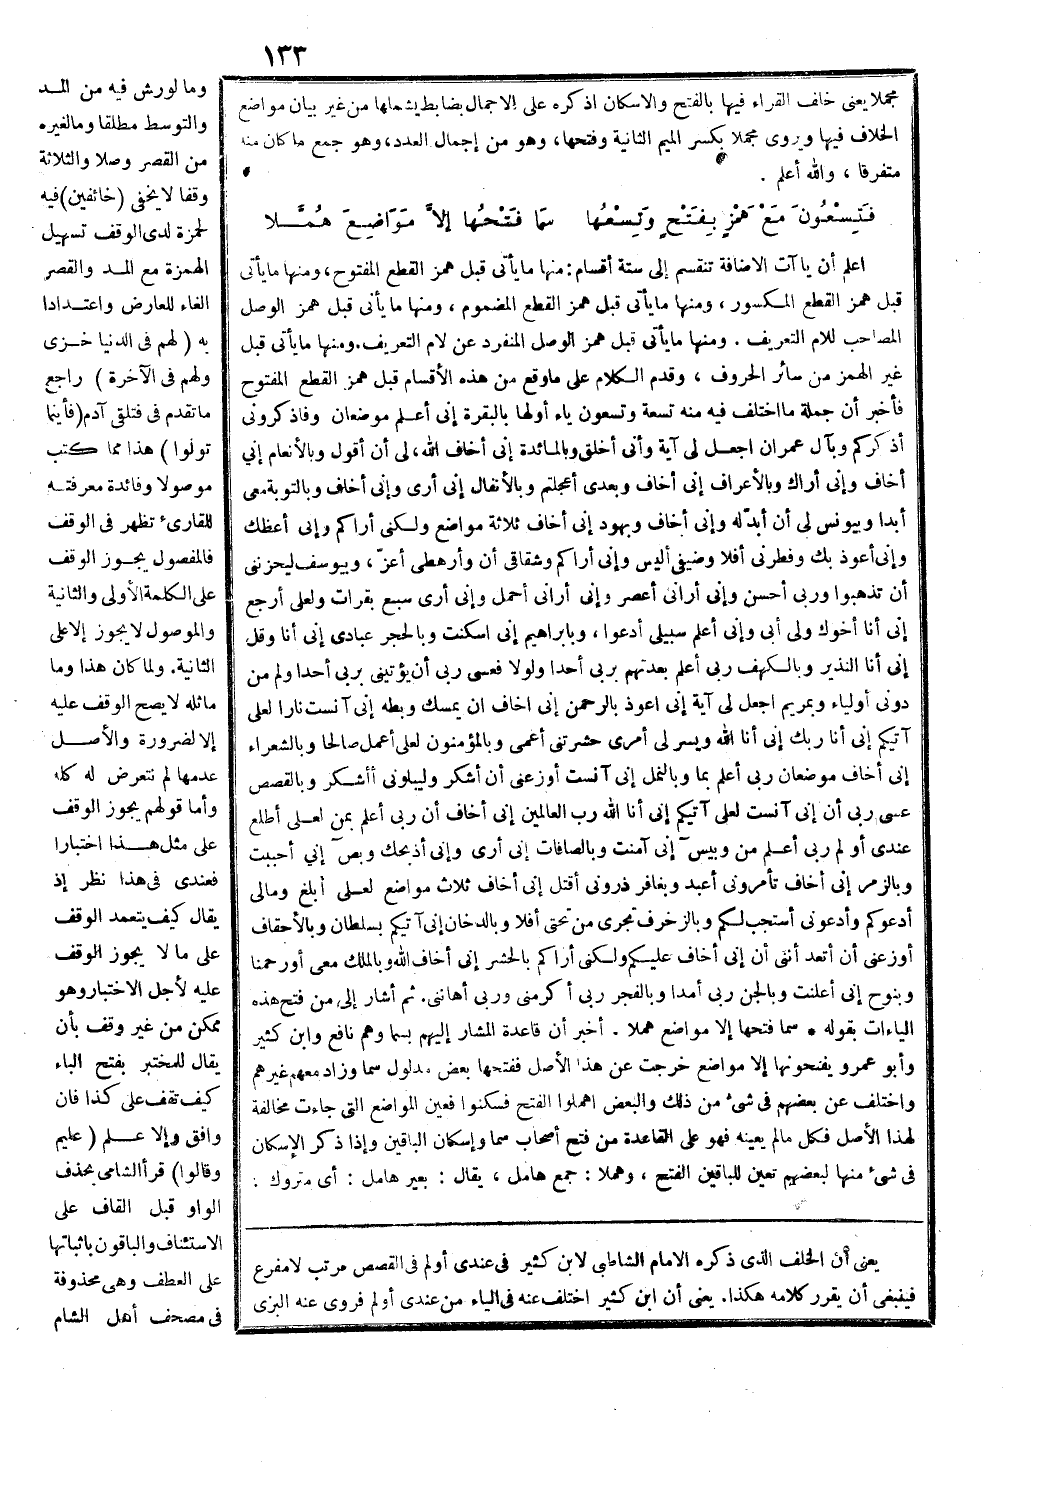 ١٣٣
مجملا يعنى خلف القراء فيها بالفتح والاسكان اذكره على الاجمال بضابط يشملها من غير بيان مواضع
الخلاف فيها وروى مجملا بكسر الميم الثانية وفتحها، وهو من إجمال العدد، وهو جمع ما كان منه
متفرقا ، والله أعلم .
فَتِسْعُونَ مَعْ هَمْزٍ بِفَتْحٍ وَتِسْعُهَا سَمَا فَتْحُهَا إِلاَّ مَوَاضِعَ هُمَّلا
اعلم أن ياآت الاضافة تنقسم إلى ستة أقسام: منها مايأتى قبل همز القطع المفتوح، ومنها مايأتى
قبل همز القطع المكسور ، ومنها مايأتى قبل همز القطع المضموم ، ومنها مايأتى قبل همز الوصل
المصاحب للام التعريف . ومنها مايأتى قبل همز الوصل المنفرد عن لام التعريف. ومنها مايأتى قبل
غير الهمز من سائر الحروف ، وقدم الكلام على ماوقع من هذه الأقسام قبل همز القطع المفتوح
فأخبر أن جملة مااختلف فيه منه تسعة وتسعون ياء أولها بالبقرة إنى أعلم موضعان وفاذكرونى
أذكركم وبآل عمران اجعل لى آية وأنى أخلق وبالمائدة إنى أخاف الله، لى أن أقول وبالأنعام إني
أخاف وإنى أراك وبالأعراف إنى أخاف وبعدى أعجلتم وبالأنفال إنى أرى وإنى أخاف وبالتوبة معى
أبدا وبيونس لى أن أبدّله وإنى أخاف وبهود إنى أخاف ثلاثة مواضع ولكنى أراكم وإنى أعظك
وإنى أعوذ بك وفطرنى أفلا وضيفى أليس وإنى أراكم وشقاقى أن وأرهطى أعزّ ، وبيوسف ليحزننى
أن تذهبوا وربى أحسن وإنى أرانى أعصر وإنى أرانى أحمل وإنى أرى سبع بقرات ولعلى أرجع
إنى أنا أخوك ولى أبى وإنى أعلم سبيلى أدعوا ، وبابراهيم إنى اسكنت وبالحجر عبادى إنى أنا وقل
إنى أنا النذير وبالكهف ربى أعلم بعدتهم بربى أحدا ولولا فعسى ربى أن يؤتينى بربى أحدا ولم من
دونى أولياء وبمريم اجعل لى آية إنى اعوذ بالرحمن إنى اخاف ان يمسك وبطه إنى آنست نارا لعلى
آتيكم إنى أنا ربك إنى أنا الله ويسر لى أمرى حشرتنى أعمى وبالمؤمنون لعلى أعمل صالحا وبالشعراء
إنى أخاف موضعان ربى أعلم بما وبالنمل إنى آنست أوزعنى أن أشكر وليبلونى أأشكر وبالقصص
عسى ربى أن إنى آنست لعلى آتيكم إنى أنا الله رب العالمين إنى أخاف أن ربى أعلم بمن لعلى أطلع
عندى أو لم ربى أعلم من وبيس إنى آمنت وبالصافات إنى أرى وإنى أذبحك وبص إني أحببت
وبالزمر إنى أخاف تأمرونى أعبد وبغافر ذرونى أقتل إنى أخاف ثلاث مواضع لعلى أبلغ ومالى
أدعوكم وأدعونى أستجب لكم وبالزخرف تجرى من تحتى أفلا وبالدخان إنى آتيكم بسلطان وبالأحقاف
أوزعنى أن أتعد أننى أن إنى أخاف عليكم ولكنى أراكم بالحشر إنى أخاف الله وبالملك معى أورحمنا
وبنوح إنى أعلنت وبالجن ربى أمدا وبالفجر ربى أكرمنى وربى أهاننى. ثم أشار إلى من فتح هذه
الياءات بقوله * سما فتحها إلا مواضع هملا . أخبر أن قاعدة المشار إليهم بسما وهم نافع وابن كثير
وأبو عمرو يفتحونها إلا مواضع خرجت عن هذا الأصل ففتحها بعض مدلول سما وزاد معهم غيرهم
واختلف عن بعضهم فى شىء من ذلك والبعض اهملوا الفتح فسكنوا فعين المواضع التى جاءت مخالفة
لهذا الأصل فكل مالم يعينه فهو على القاعدة من فتح أصحاب سما وإسكان الباقين وإذا ذكر الإسكان
فى شىء منها لبعضهم تعين للباقين الفتح ، وهملا : جمع هامل ، يقال : بعير هامل : أى متروك :
يعنى أن الخلف الذى ذكره الامام الشاطبى لابن كثير فى عندى أولم فى القصص مرتب لامفرع
فينبغى أن يقرر كلامه هكذا. يعنى أن ابن كثير اختلف عنه فى الياء من عندى أولم فروى عنه البزى
وما لورش فيه من المد
والتوسط مطلقا ومالغيره
من القصر وصلا والثلاثة
وقفا لايخفى (خائفين) فيه
لحمزة لدى الوقف تسهيل
الهمزة مع المد والقصر
الغاء للعارض واعتدادا
به (لهم فى الدنيا خزى
ولهم فى الآخرة) راجع
ماتقدم فى فتلقى آدم (فأينما
تولوا) هذا مما كتب
موصولا وفائدة معرفته
للقارىء تظهر فى الوقف
فالمفصول يجوز الوقف
على الكلمة الأولى والثانية
والموصول لايجوز إلاعلى
الثانية. ولما كان هذا وما
ماثله لايصح الوقف عليه
إلا لضرورة والأصل
عدمها لم نتعرض له كله
وأما قولهم يجوز الوقف
على مثل هذا اختبارا
فعندى فى هذا نظر إذ
يقال كيف يتعمد الوقف
على ما لا يجوز الوقف
عليه لأجل الاختبار وهو
ممكن من غير وقف بأن
يقال للمختبر بفتح الباء
كيف تقف على كذا فان
وافق وإلا علم (عليم
وقالوا) قرأ الشامى بحذف
الواو قبل القاف على
الاستئناف والباقون باثباتها
على العطف وهى محذوفة
فى مصحف أهل الشام